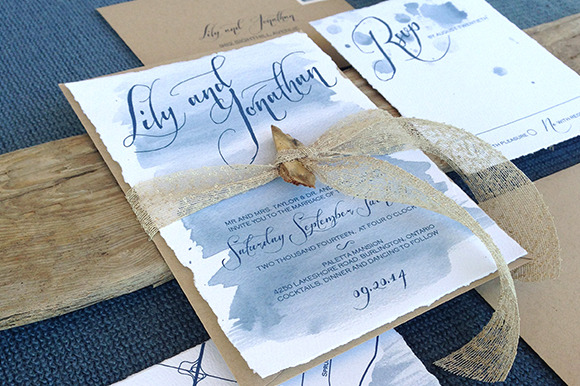 Lily and Jonathan
Lily and
Jonathan
MR AND MRS. TAYLOR & DR. AND
INVITE YOU TO THE MARRIAGE OF
Saturday September
TWO THOUSAND FOURTEEN, AT FOUR O'CLOCK
PALETTA MANSION
4250 LAKESHORE ROAD, BURLINGTON, ONTARIO
COCKTAILS, DINNER AND DANCING TO FOLLOW
Rsvp
BY AUGUST
PLEASURE